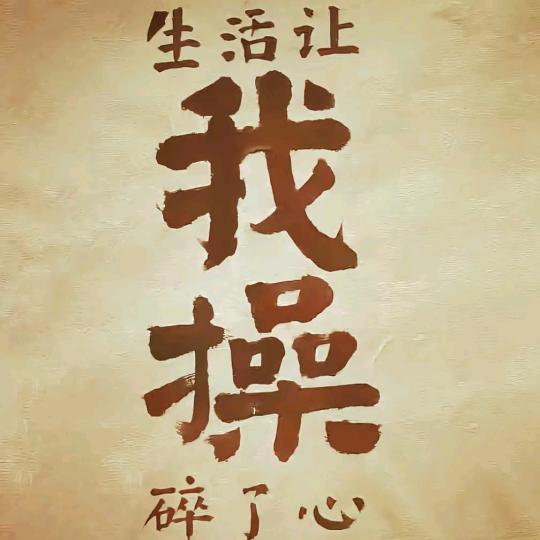 生活让
我
操
碎了心